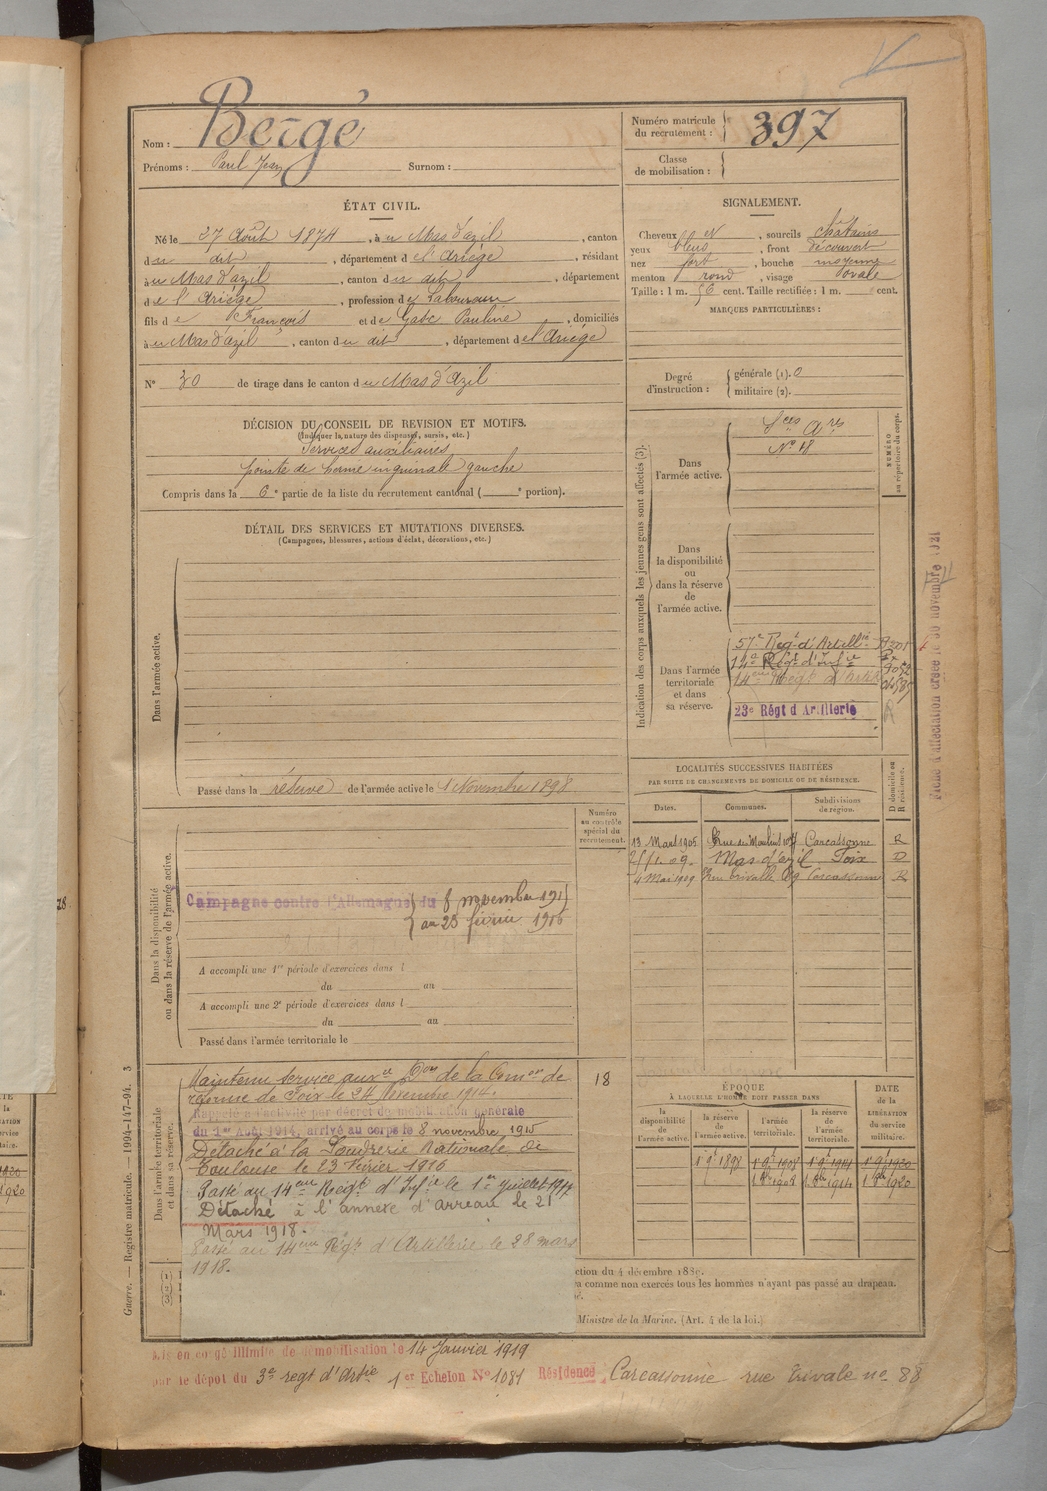 Nom : Bergé
Prénoms : Paul Jean Surnom :
Numéro matricule du recrutement : 397
Classe de mobilisation :
ÉTAT CIVIL.
Né le 27 Août 1874, à u Mas d'azil, canton
du dit, département de l'Ariège, résidant
à u Mas d'azil, canton du dit, département
de l'Ariège, profession de Laboureur
fils de François et de Gabe Pauline, domiciliés
à u Mas d'azil, canton du dit, département de l'Ariège
N° 30 de tirage dans le canton du Mas d'Azil
SIGNALEMENT.
Cheveux et, sourcils châtains
yeux bleus, front découvert
nez fort, bouche moyenne
menton rond, visage ovale
Taille : 1 m. 56 cent. Taille rectifiée : 1 m. cent.
MARQUES PARTICULIÈRES :
Degré d'instruction : générale (1). 0
militaire (2).
DÉCISION DU CONSEIL DE REVISION ET MOTIFS.
(Indiquer la nature des dispenses, sursis, etc.)
Services auxiliaires
pointe de hernie inguinale gauche
Compris dans la 6e partie de la liste du recrutement cantonal ( e portion).
DÉTAIL DES SERVICES ET MUTATIONS DIVERSES.
(Campagnes, blessures, actions d'éclat, décorations, etc.)
Dans l'armée active.
Passé dans la réserve de l'armée active le 1 Novembre 1898
Indication des corps auxquels les jeunes gens sont affectés (3).
NUMÉRO au répertoire du corps.
Dans l'armée active.
Sces Ares
N° 18
Dans la disponibilité ou dans la réserve de l'armée active.
Dans l'armée territoriale et dans sa réserve.
57e Regt d'Artillie
14e Régt d'Infie
14eme Régt d'Artie
23e Régt d'Artillerie
Fiche d'affectation créée le 30 novembre 1921
LOCALITÉS SUCCESSIVES HABITÉES
PAR SUITE DE CHANGEMENTS DE DOMICILE OU DE RÉSIDENCE.
Dates. Communes. Subdivisions de région. D domicile ou R résidence.
13 Mars 1905 Rue du Moulin Carcassonne R
09 Mas d'azil Foix D
4 Mai 1919 rue trivalle 88 Carcassonne R
Numéro au contrôle spécial du recrutement.
Dans la disponibilité ou dans la réserve de l'armée active.
Campagne contre l'Allemagne du 8 novembre 1915
au 23 février 1916
A accompli une 1re période d'exercices dans l
du au
A accompli une 2e période d'exercices dans l
du au
Passé dans l'armée territoriale le
Dans l'armée territoriale et dans sa réserve.
Maintenu service auxre Don de la Comon de
réforme de Foix le 24 Novembre 1914.
18
Rappelé à l'activité par décret de mobilisation générale
du 1er Août 1914, arrivé au corps le 8 novembre 1915
Détaché à la Poudrerie Nationale de
Toulouse le 23 Février 1916
Passé au 14eme Régt d'Infie le 1er Juillet 1917
Détaché à l'annexe d'arreau le 21
Mars 1918.
Passé au 14eme Régt d'Artillerie le 28 mars
1918.
ÉPOQUE
À LAQUELLE L'HOMME DOIT PASSER DANS
la disponibilité de l'armée active. la réserve de l'armée active. l'armée territoriale. la réserve de l'armée territoriale.
DATE de la LIBÉRATION du service militaire.
1er 9e 1898 1er 9e 1908 1er 9e 1914 1er 9e 1920
1er 8bre 1908 1er 8bre 1914 1er 8bre 1920
ction du 4 décembre 1889.
a comme non exercés tous les hommes n'ayant pas passé au drapeau.
Ministre de la Marine. (Art. 4 de la loi.)
Guerre. — Registre matricule. — 1994-147-94. 3
Mis en congé illimité de démobilisation le 14 Janvier 1919
par le dépot du 3e regt d'Artie 1er Echelon N° 1081 Résidence Carcassonne rue trivale no 88